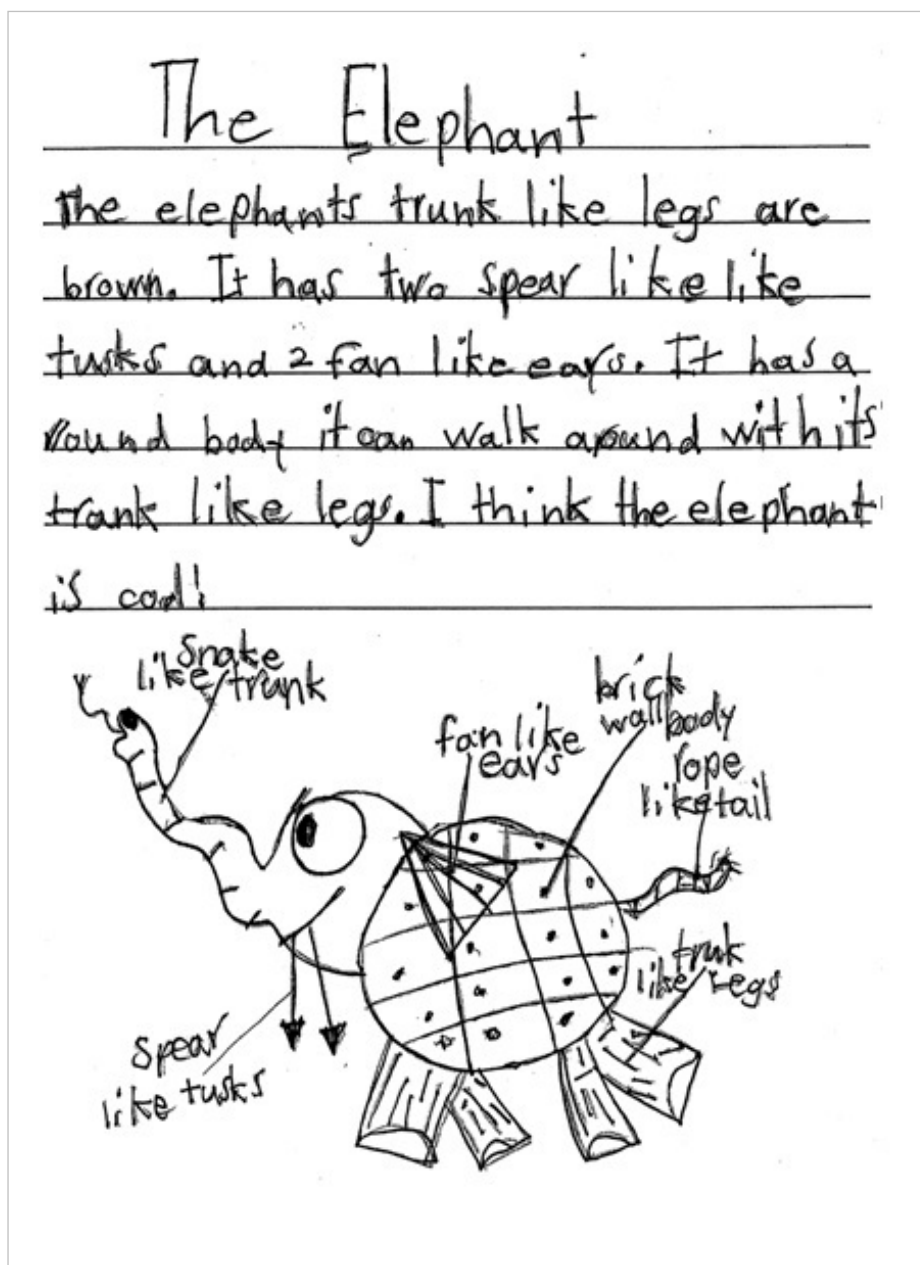 The Elephant
The elephants trunk like legs are
brown. It has two spear like like
tusks and 2 fan like ears. It has a
round body it can walk around with its
trank like legs. I think the elephant
is cool!
snake
like trunk
fan like
ears
brick
wall body
rope
like tail
truk
like legs
spear
like tusks